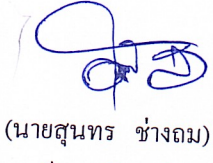 (นายสุนทร ช่างถม)